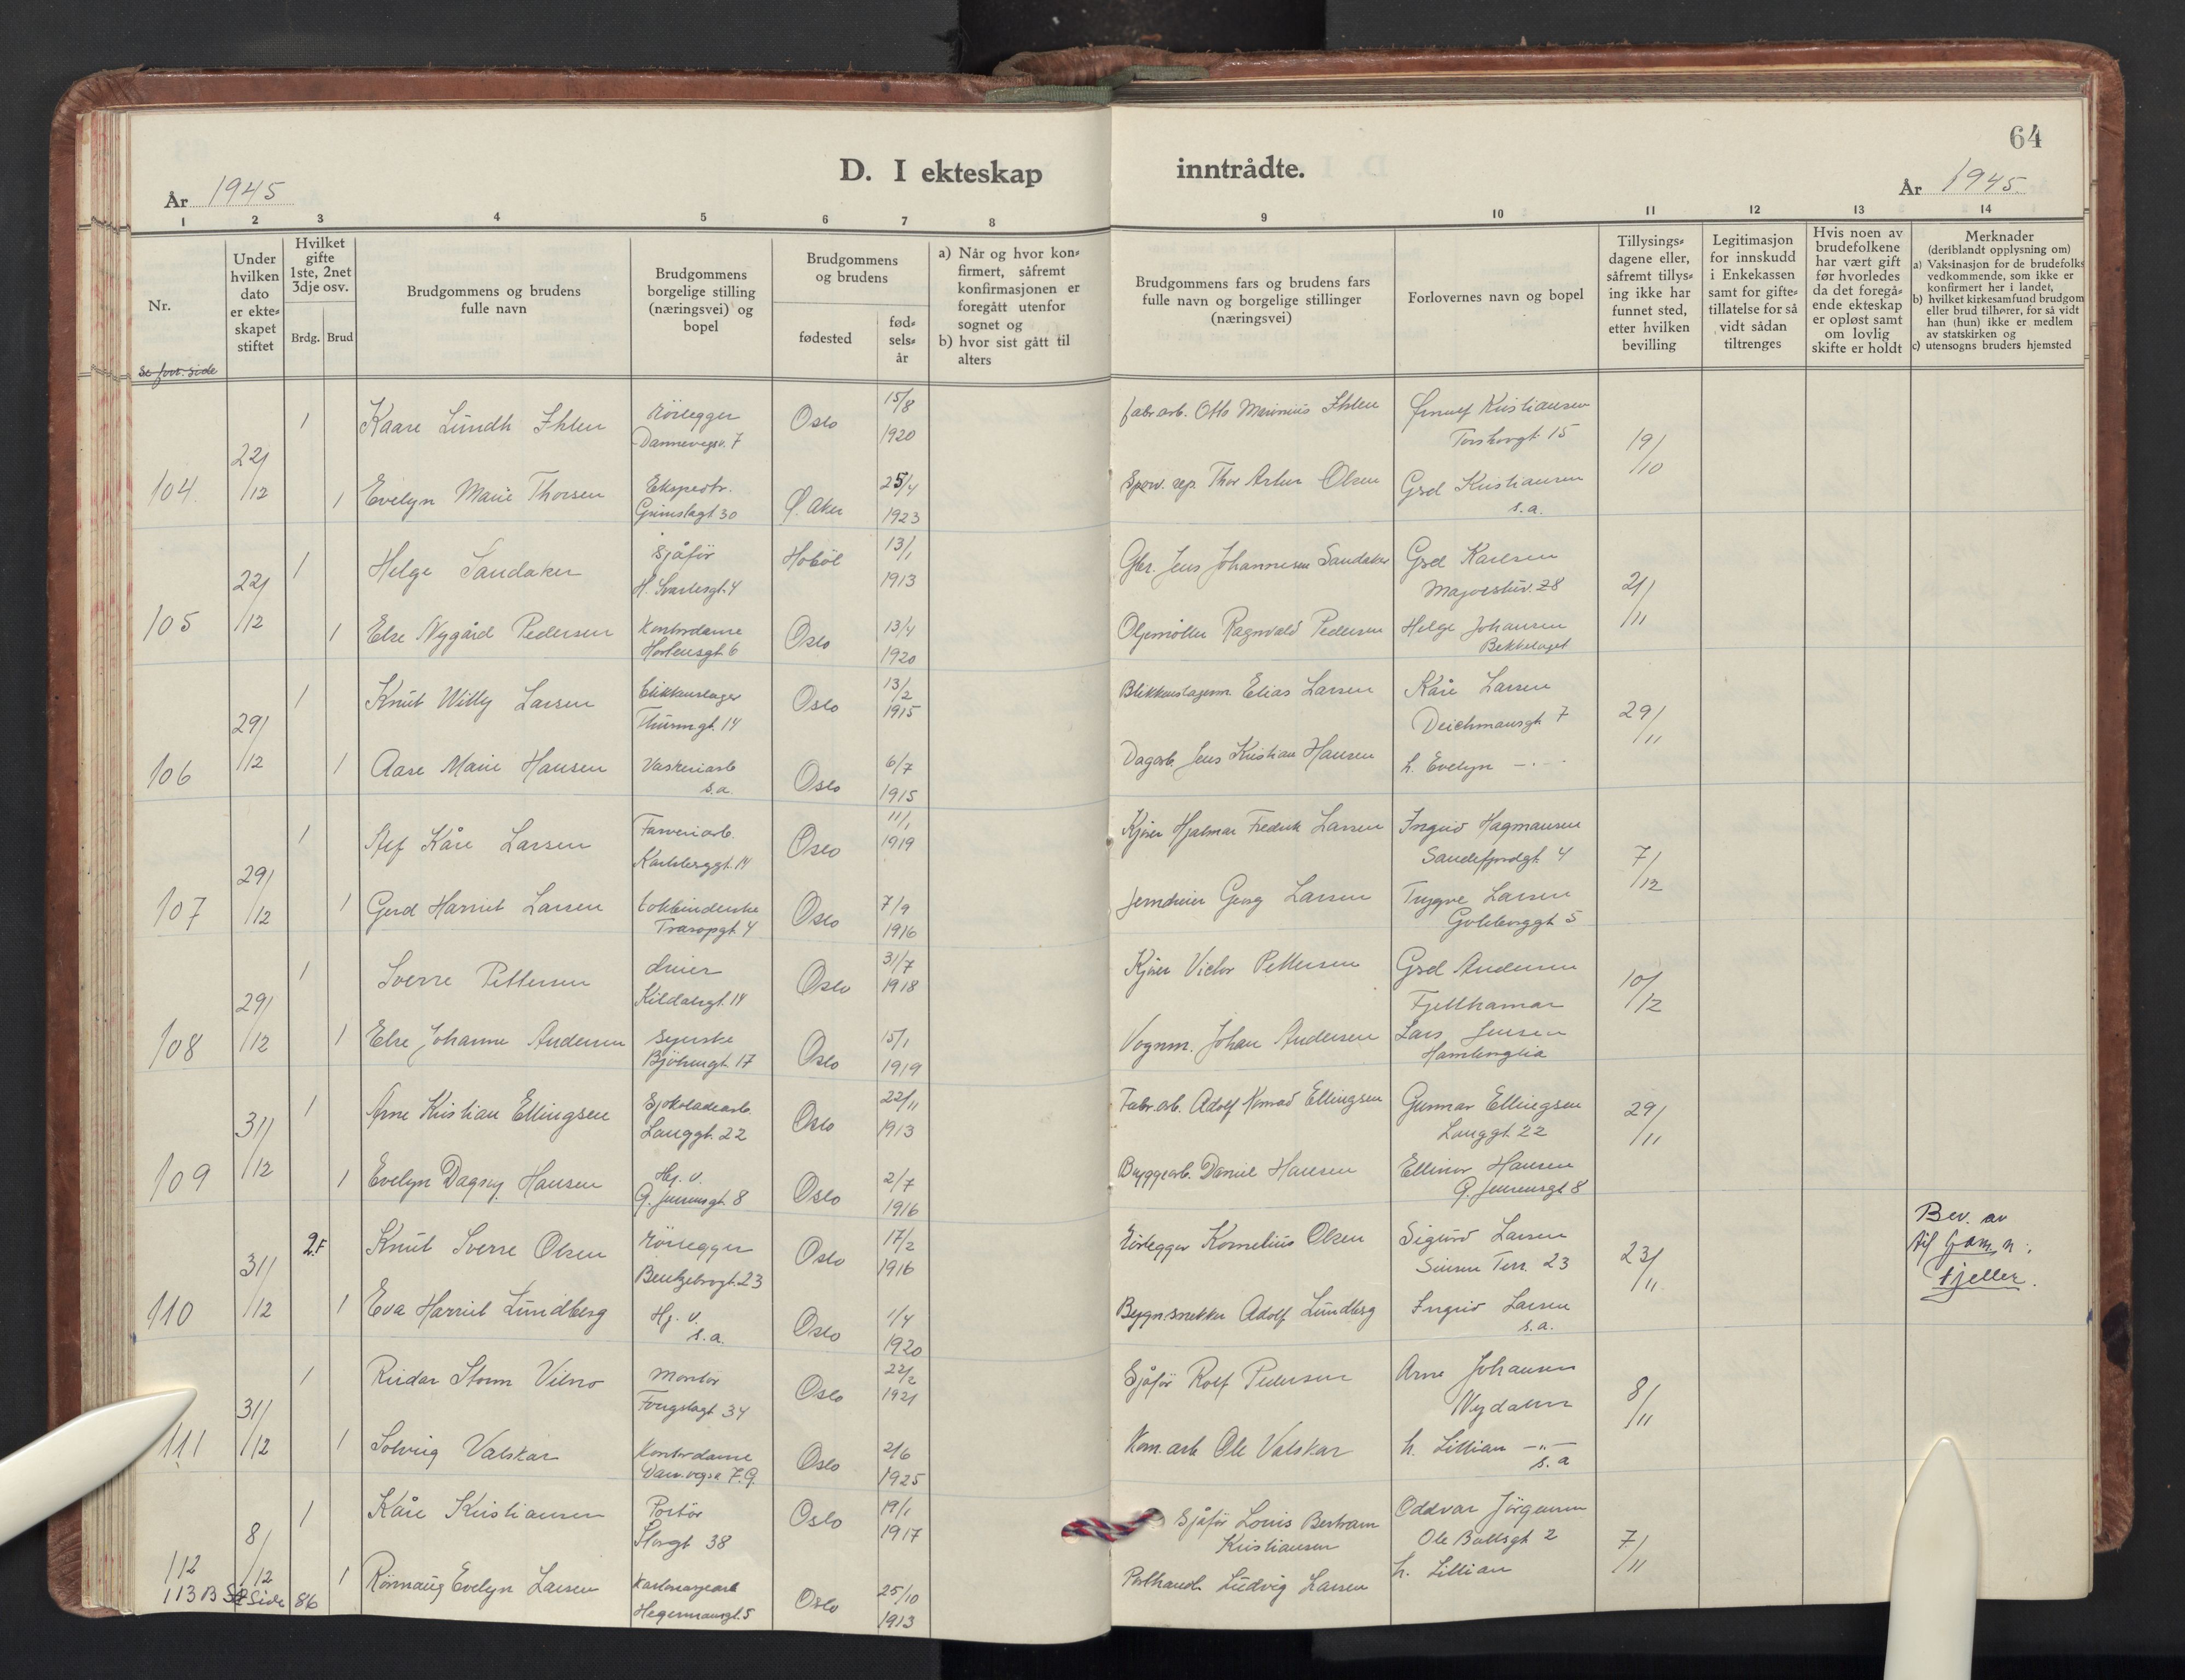 64
D. I ekteskap inntrådte.
År 1945
År 1945
1 2 3 4 5 6 7 8 9 10 11 12 13 14
Nr.
Under hvilken dato er ekte=skapet stiftet
Hvilket gifte 1ste, 2net 3dje osv.
Brdg. Brud
Brudgommens og brudens fulle navn
Brudgommens borgelige stilling (næringsvei) og bopel
Brudgommens og brudens
fødested
fød=sels=år
a) Når og hvor kon=firmert, såfremt konfirmasjonen er foregått utenfor sognet og
b) hvor sist gått til alters
Brudgommens fars og brudens fars fulle navn og borgelige stillinger (næringsvei)
Forlovernes navn og bopel
Tillysings=dagene eller, såfremt tillys=ing ikke har funnet sted, etter hvilken bevilling
Legitimasjon for innskudd i Enkekassen samt for gifte=tillatelse for så vidt sådan tiltrenges
Hvis noen av brudefolkene har vært gift før hvorledes da det foregå=ende ekteskap er opløst samt om lovlig skifte er holdt
Merknader
(deriblandt opplysning om)
a) Vaksinasjon for de brudefolks vedkommende, som ikke er konfirmert her i landet,
b) hvilket kirkesamfund brudgom eller brud tilhører, for så vidt han (hun) ikke er medlem av statskirken og
c) utensogns bruders hjemsted
Se forr. side
104 22/12
1 Kaare Lundh Ihlen Rörlegger Dannevigsv. 7 Oslo 15/8 1920 fabr.arb. Otto Marinius Ihlen Ørnulf Kristiansen Torshovgt. 15 19/10
1 Evelyn Marie Thorsen Ekspedtr. Grimstagt. 30 Ø. Aker 25/4 1923 Sporv. rep. Thor Artur Olsen Gerd Kristiansen s.a.
105 22/12
1 Helge Sandaker Sjåför H. Svartesgt. 4 Hoböl 13/1 1913 Gbr. Jens Johannesen Sandaker Gerd Karlsen Majorstuv. 28 21/11
1 Else Nygård Pedersen Kontordame Hortensgt. 6 Oslo 13/4 1920 Oljemöller Ragnvald Pedersen Helge Johansen Bekkelaget
106 29/12
1 Knut Willy Larsen blikkenslager Thurmgt. 14 Oslo 13/2 1915 Blikkenslagerm. Elias Larsen Kåre Larsen Deichmansgt. 7 29/11
1 Aase Marie Hansen Vaskeriarb s.a. Oslo 6/7 1915 Dagarb. Jens Kristian Hansen h. Evelyn -"-
107 29/12
1 Alf Kåre Larsen Farveriarb. Karlsborggt. 14 Oslo 11/1 1919 Kjörer Hjalmar Fredrik Larsen Ingrid Hagmansen Sandefjordgt. 4 7/12
1 Gerd Harriet Larsen bokbinderske Traropgt. 4 Oslo 7/9 1916 Jerndreier Georg Larsen Trygve Larsen Göteborggt. 5
108 29/12
1 Sverre Pettersen dreier Kildalsgt. 14 Oslo 31/7 1918 Kjörer Victor Pettersen Gerd Andersen Fjellhamar 10/12
1 Else Johanne Andersen Syerske Bjölsengt. 17 Oslo 15/1 1919 Vognm. Johan Andersen Lars Jensen
109 31/12
1 Arne Kristian Ellingsen Sjokoladearb. Langgt. 22 Oslo 22/11 1913 Fabr.arb. Adolf Konrad Ellingsen Gunnar Ellingsen Langgt. 22 29/11
1 Evelyn Dagny Hansen Hj. v. G. Jensensgt. 8 Oslo 2/7 1916 Bryggearb. Daniel Hansen Ellinor Hansen G. Jensensgt 8
110 31/12
2.F Knut Sverre Olsen Rörlegger Bentzebrogt. 23 Oslo 17/2 1916 Rörlegger Kornelius Olsen Sigurd Larsen Sinsen Terr. 23 23/11 Bev. av
1 Eva Harriet Lundberg Hj. v. s.a. Oslo 1/4 1920 Bygn.snekker Adolf Lundberg Ingrid Larsen s.a.
111 31/12
1 Reidar Storm Vilno Montör 34 Oslo 22/2 1921 Sjåför Rolf Pedersen Arne Johansen Nydalen 8/11
1 Solveig Valskar Kontordame Dannevigsv. 7.9. Oslo 2/6 1925 Kom.arb Ole Valskar h. Lillian -"- s.a
112 8/12
1 Kåre Kristiansen Portör Storgt 38 Oslo 19/1 1917 Sjåför Louis Bertram Kristiansen Oddvar Jörgensen Ole Bullsgt. 2 7/11
1 Rönnaug Evelyn Larsen Kartonasjearb Hegermansgt. 5 Oslo 25/10 1913 Ludvig Larsen h. Lillian
113 B Se Side 86